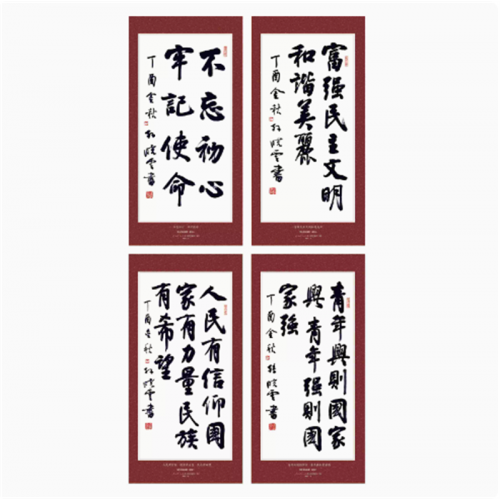 不忘初心
牢記使命
丁酉金秋
富强民主文明
和諧美麗
丁酉金秋
人民有信仰國
家有力量民族
有希望
丁酉
青年興則國家
興青年强則國
家强
丁酉金秋